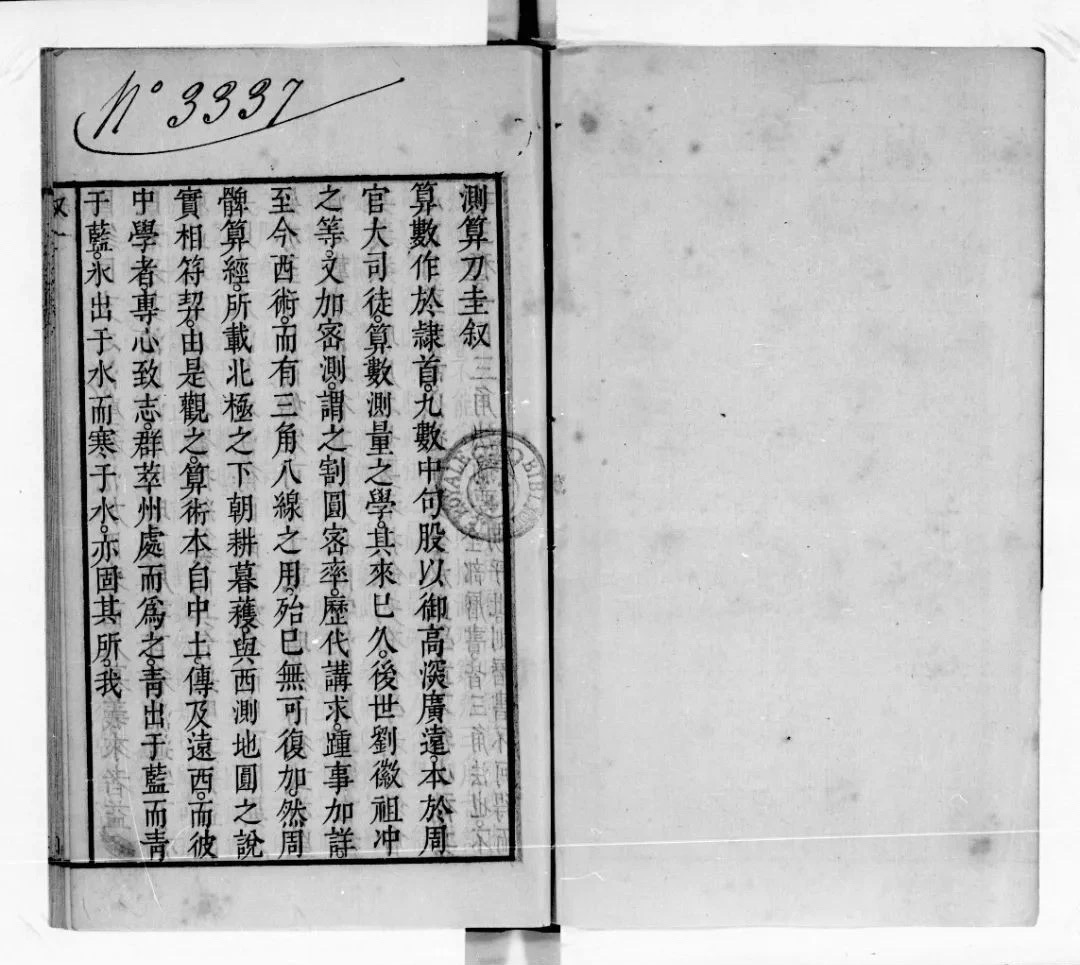 Nº 3337
測算刀圭叙
算數作於隷首。九數中句股以御高深廣遠。本於周
官大司徒。算數測量之學。其來已久。後世劉徽祖冲
之等。又加密測。謂之割圓密率。歷代講求。踵事加詳。
至今西術。而有三角八線之用。殆已無可復加。然周
髀算經。所載北極之下朝耕暮穫。與西測地圓之說
實相符契。由是觀之。算術本自中土。傳及遠西。而彼
中學者。專心致志。群萃州處而為之。青出于藍而青
于藍。氷出于水而寒于水。亦固其所。我